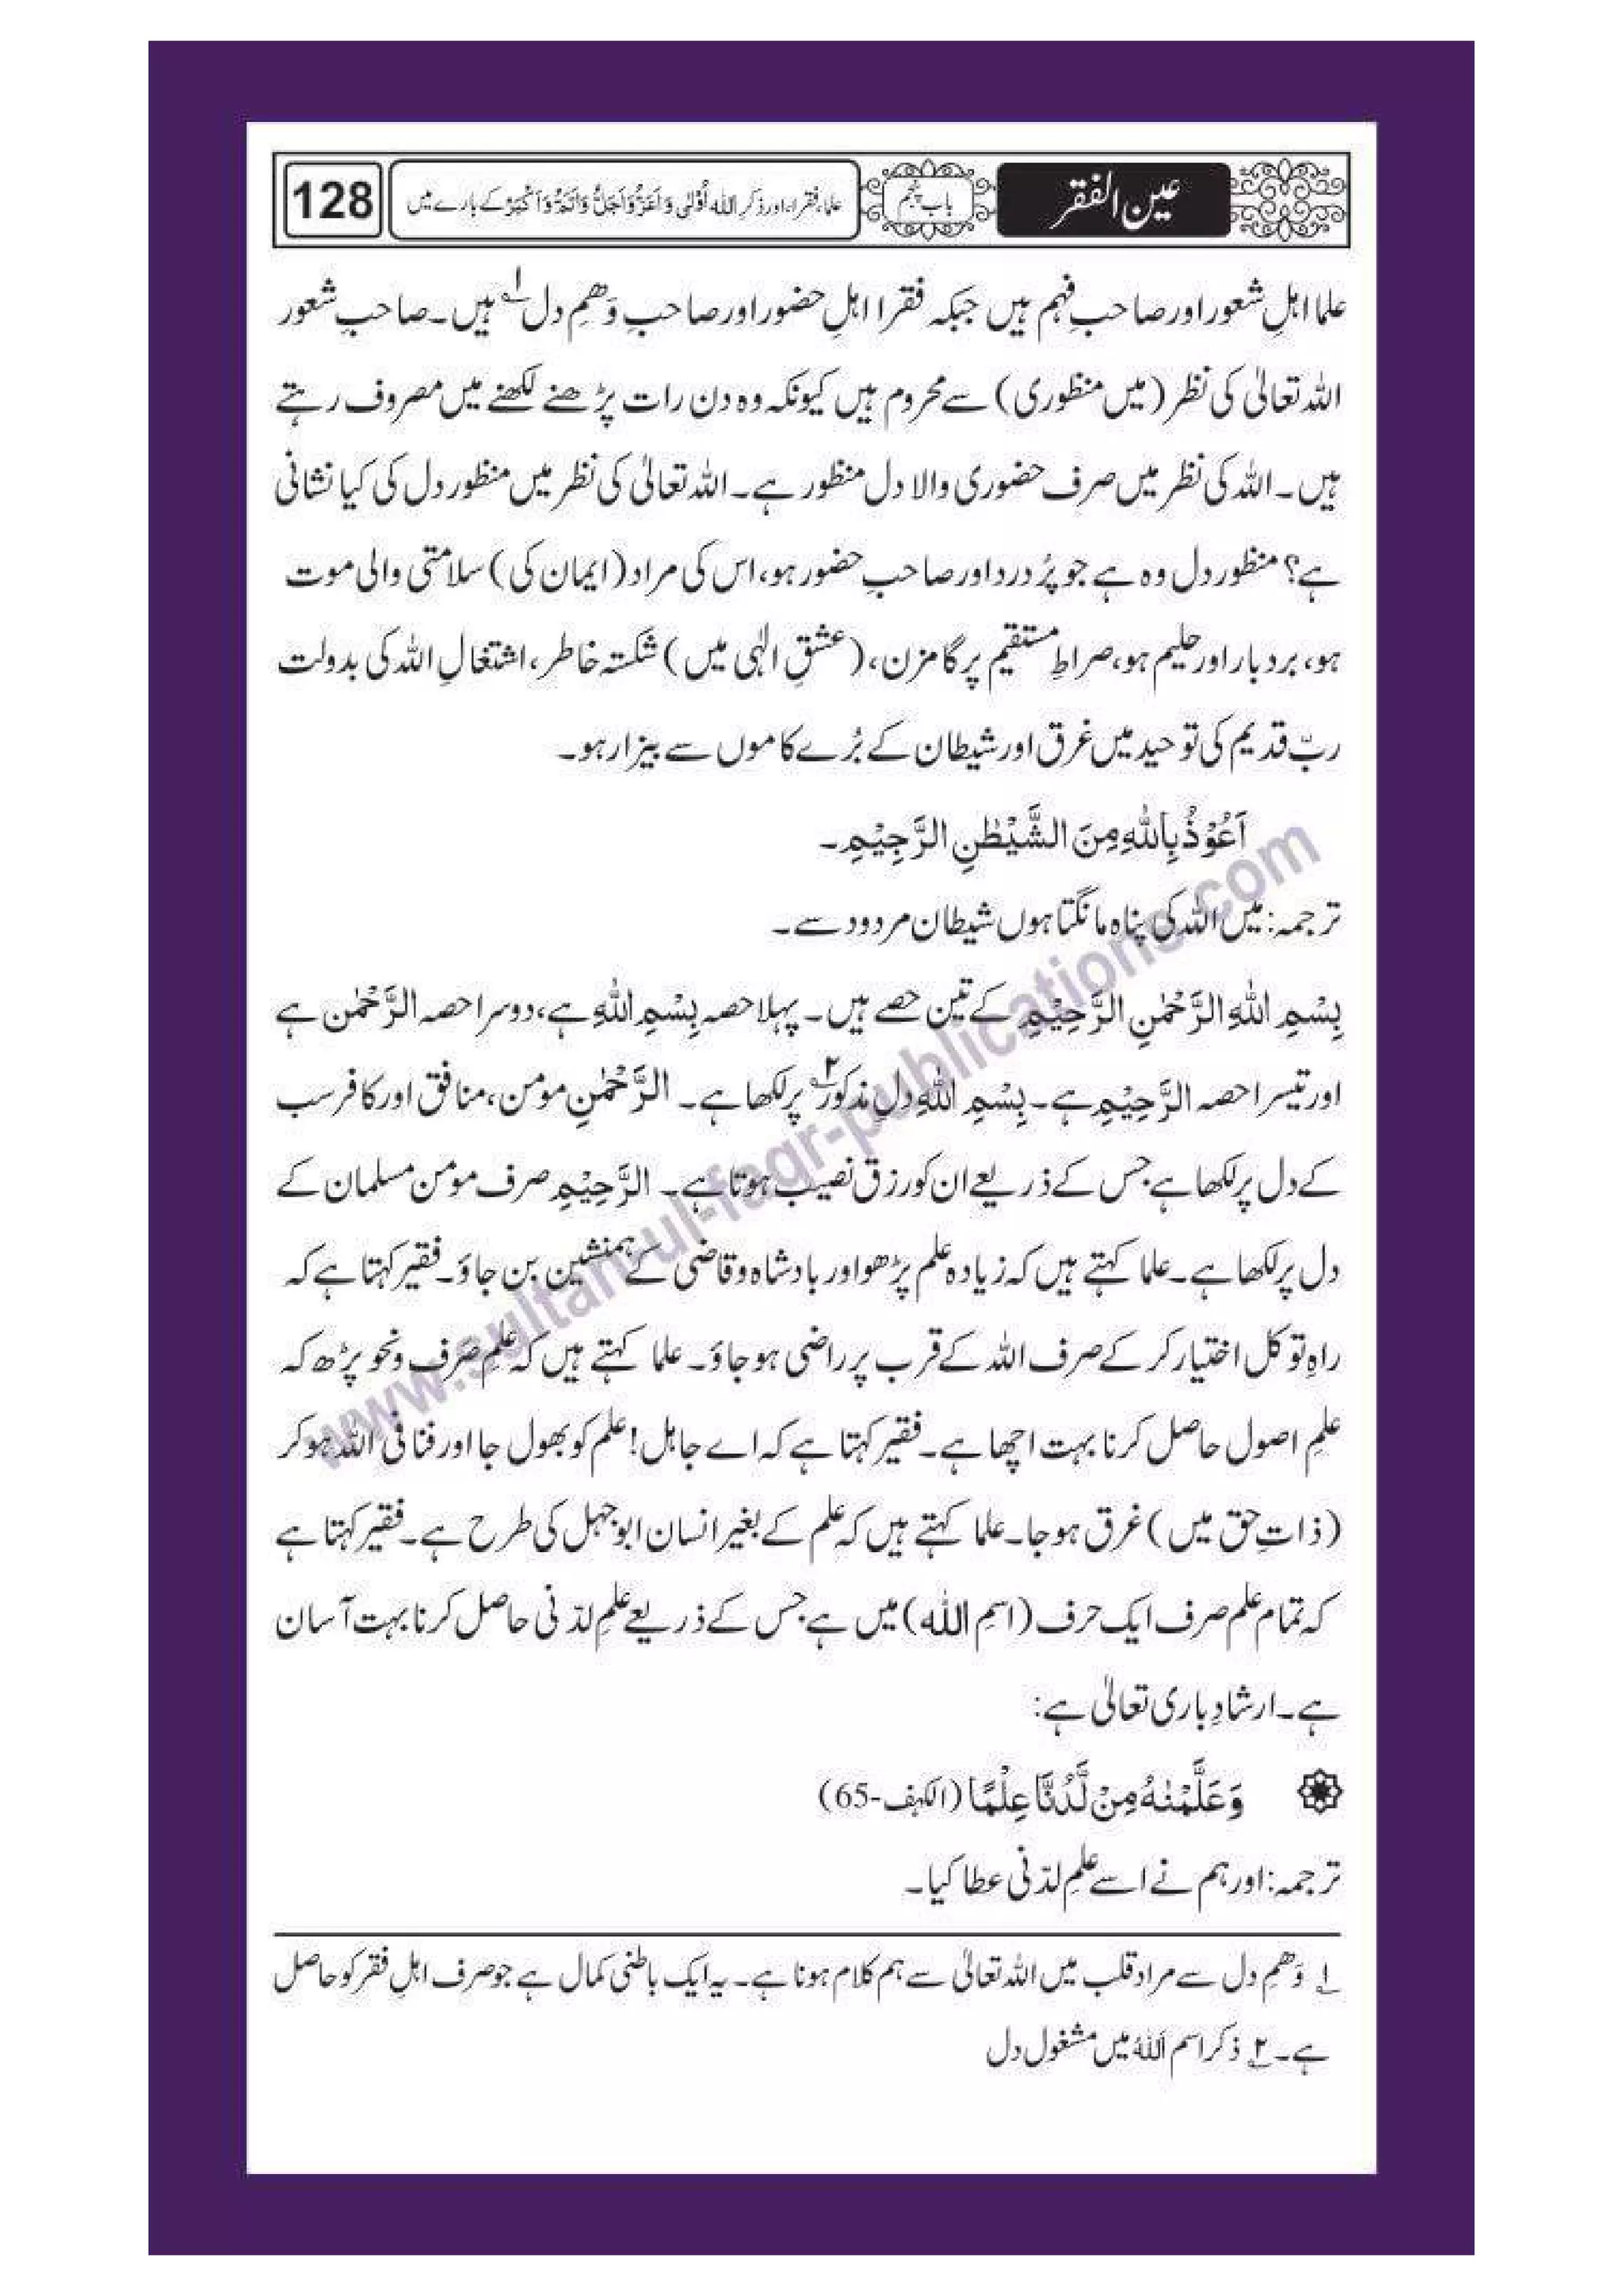 عین الفقر
باب پنجم
علما، فقرا، اور ذکر اللہ اُوْلٰی وَاَعَزُّ وَاَجَلُّ وَاَتَمُّ وَاَکْبَرُ کے بارے میں
128
علما اہلِ شعور اور صاحبِ فہم ہیں جبکہ فقرا اہلِ حضور اور صاحبِ وَھمِ دل ۱؎ ہیں۔ صاحبِ شعور
اللہ تعالیٰ کی نظر (میں منظوری) سے محروم ہیں کیونکہ وہ دن رات پڑھنے لکھنے میں مصروف رہتے
ہیں۔ اللہ کی نظر میں صرف حضوری والا دل منظور ہے۔ اللہ تعالیٰ کی نظر میں منظور دل کی کیا نشانی
ہے؟ منظور دل وہ ہے جو پُر درد اور صاحبِ حضور ہو، اس کی مراد (ایمان کی) سلامتی والی موت
ہو، بردبار اور حلیم ہو، صراطِ مستقیم پر گامزن، (عشقِ الٰہی میں) شکستہ خاطر، اشتغالِ اللہ کی بدولت
ربّ قدیم کی توحید میں غرق اور شیطان کے بُرے کاموں سے بیزار ہو۔
اَعُوْذُ بِاللّٰہِ مِنَ الشَّیْطٰنِ الرَّجِیْمِ۔
ترجمہ: میں اللہ کی پناہ مانگتا ہوں شیطان مردود سے۔
بِسْمِ اللّٰہِ الرَّحْمٰنِ الرَّحِیْمِ کے تین حصے ہیں۔ پہلا حصہ بِسْمِ اللّٰہِ ہے، دوسرا حصہ الرَّحْمٰن ہے
اور تیسرا حصہ الرَّحِیْمِ ہے۔ بِسْمِ اللّٰہِ دلِ مذکور ۲؎ پر لکھا ہے۔ الرَّحْمٰنِ مومن، منافق اور کافر سب
کے دل پر لکھا ہے جس کے ذریعے ان کو رزق نصیب ہوتا ہے۔ الرَّحِیْمِ صرف مومن مسلمان کے
دل پر لکھا ہے۔ علما کہتے ہیں کہ زیادہ علم پڑھو اور بادشاہ و قاضی کے ہمنشین بن جاؤ۔ فقیر کہتا ہے کہ
راہِ توکل اختیار کر کے صرف اللہ کے قرب پر راضی ہو جاؤ۔ علما کہتے ہیں کہ علمِ صَرف و نحو پڑھ کہ
علمِ اصول حاصل کرنا بہت اچھا ہے۔ فقیر کہتا ہے کہ اے جاہل! علم کو بھول جا اور فنا فی اللہ ہو کر
(ذاتِ حق میں) غرق ہو جا۔ علما کہتے ہیں کہ علم کے بغیر انسان ابوجہل کی طرح ہے۔ فقیر کہتا ہے
کہ تمام علم صرف ایک حرف (اسمِ اللہ) میں ہے جس کے ذریعے علمِ لدّنی حاصل کرنا بہت آسان
ہے۔ ارشادِ باری تعالیٰ ہے:
وَعَلَّمْنٰہُ مِنْ لَّدُنَّا عِلْمًا (الکہف-65)
ترجمہ: اور ہم نے اسے علمِ لدّنی عطا کیا۔
۱؎ وَھمِ دل سے مراد قلب میں اللہ تعالیٰ سے ہم کلام ہونا ہے۔ یہ ایک باطنی کمال ہے جو صرف اہلِ فقر کو حاصل
ہے۔ ۲؎ ذکر اسم اَللّٰہُ میں مشغول دل
www.sultan-ul-faqr-publications.com